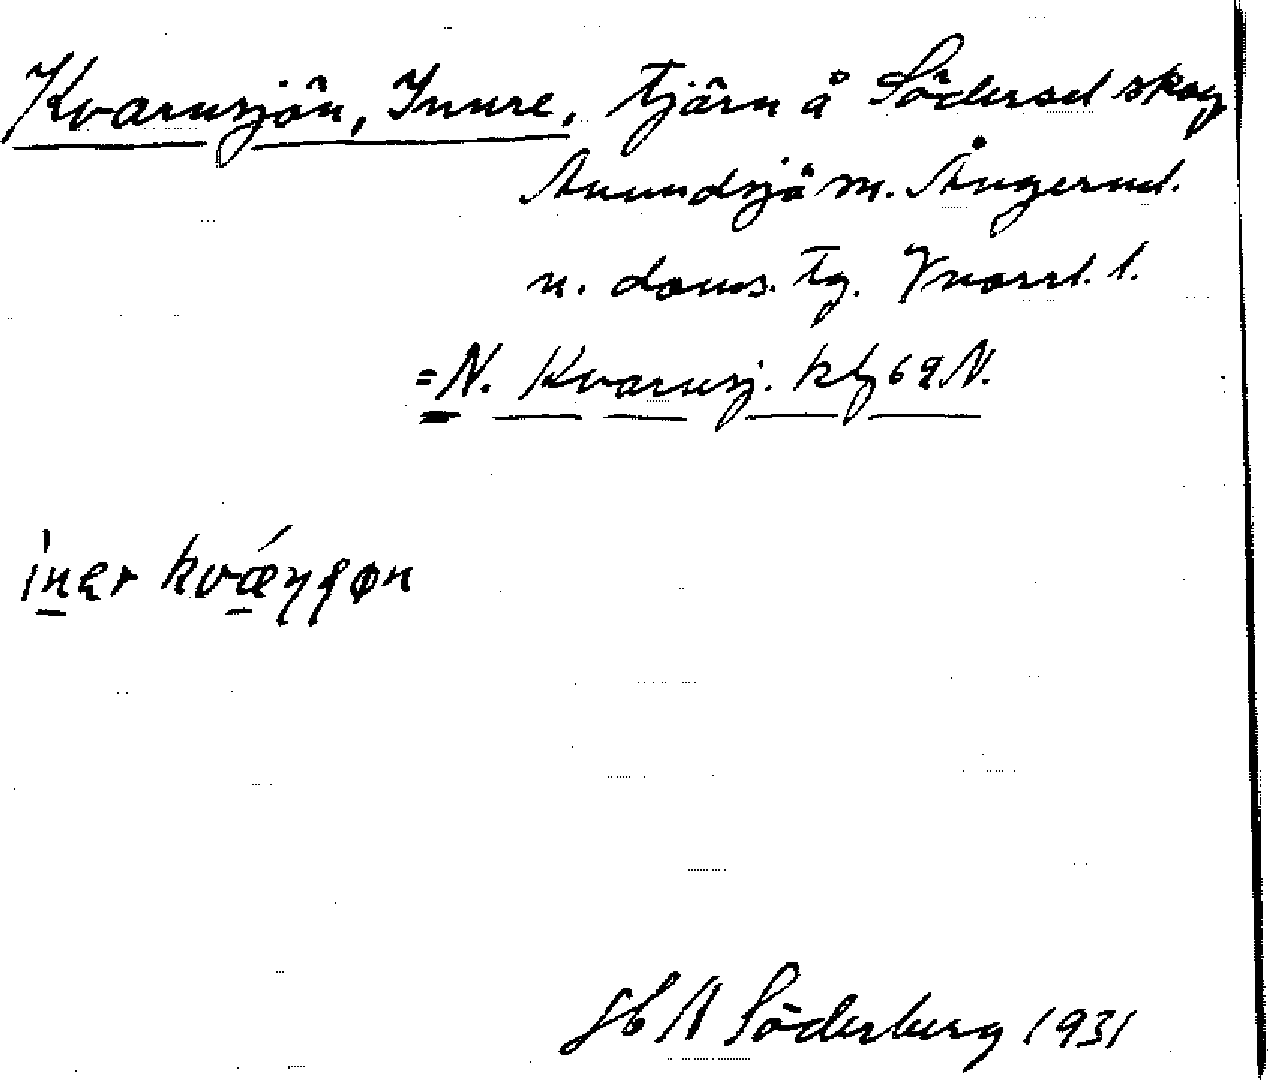 Kvarnsjön, Innre, tjärn å Södersel skog
Anundsjö sn. Ångerml.
n. doms. tg. Vnorrl. l.
= N. Kvarnsj. kbl 69 N.
inər kvǽɳʂøn
H N Söderberg 1931